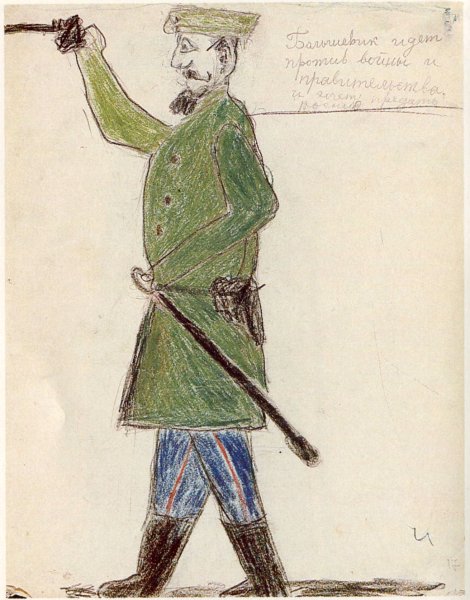 Большевик идет
против войны и
правительства.
и хочет
Россию предать
И